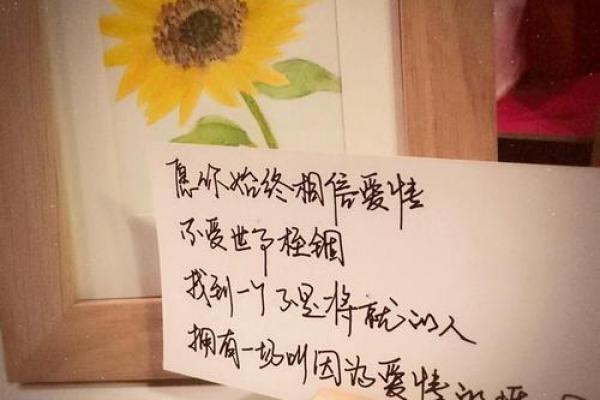 愿你始终相信爱情
不受世予桎锢
找到一个不是将就的人
拥有一场叫因为爱情的